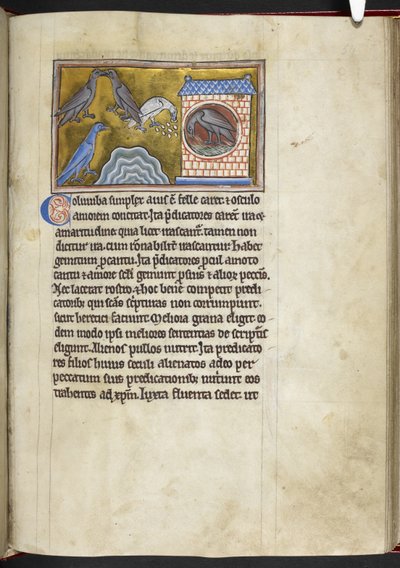 Columba simplex auis ē felle caret ⁊ osculo
amorem concitat. Ita p̄dicatores carēt ira ⁊
amaritudine quia licet irascant᷑. tamen non
dicitur ira. cum rōnabilit̄ irascantur. Habet
gemitum p cantu. Ita p̄dicatores pcul amoto
cantu ⁊ amore scl̄i gemunt p suis ⁊ alioꝝ pecc̄is.
Nec lacerat rostro. ⁊ hoc bene competit predi
catorib; qui sc̄as sc̄pturas non corrumpunt.
sicut heretici faciunt. Meliora grana eligit. eo
dem modo ipsi meliores sententias de scriptis
eligunt. Alienos pullos nutrit. Ita predicato
res filios huius seculi alienatos a deo per
peccatum suis predicationib; nutriunt eos
trahentes ad xp̄m. Iuxta fluenta sedet. ut